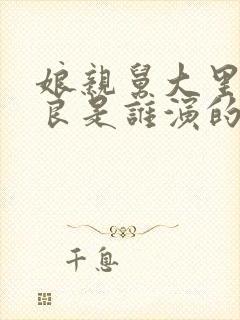 娘親舅大里
良是誰演的
千息